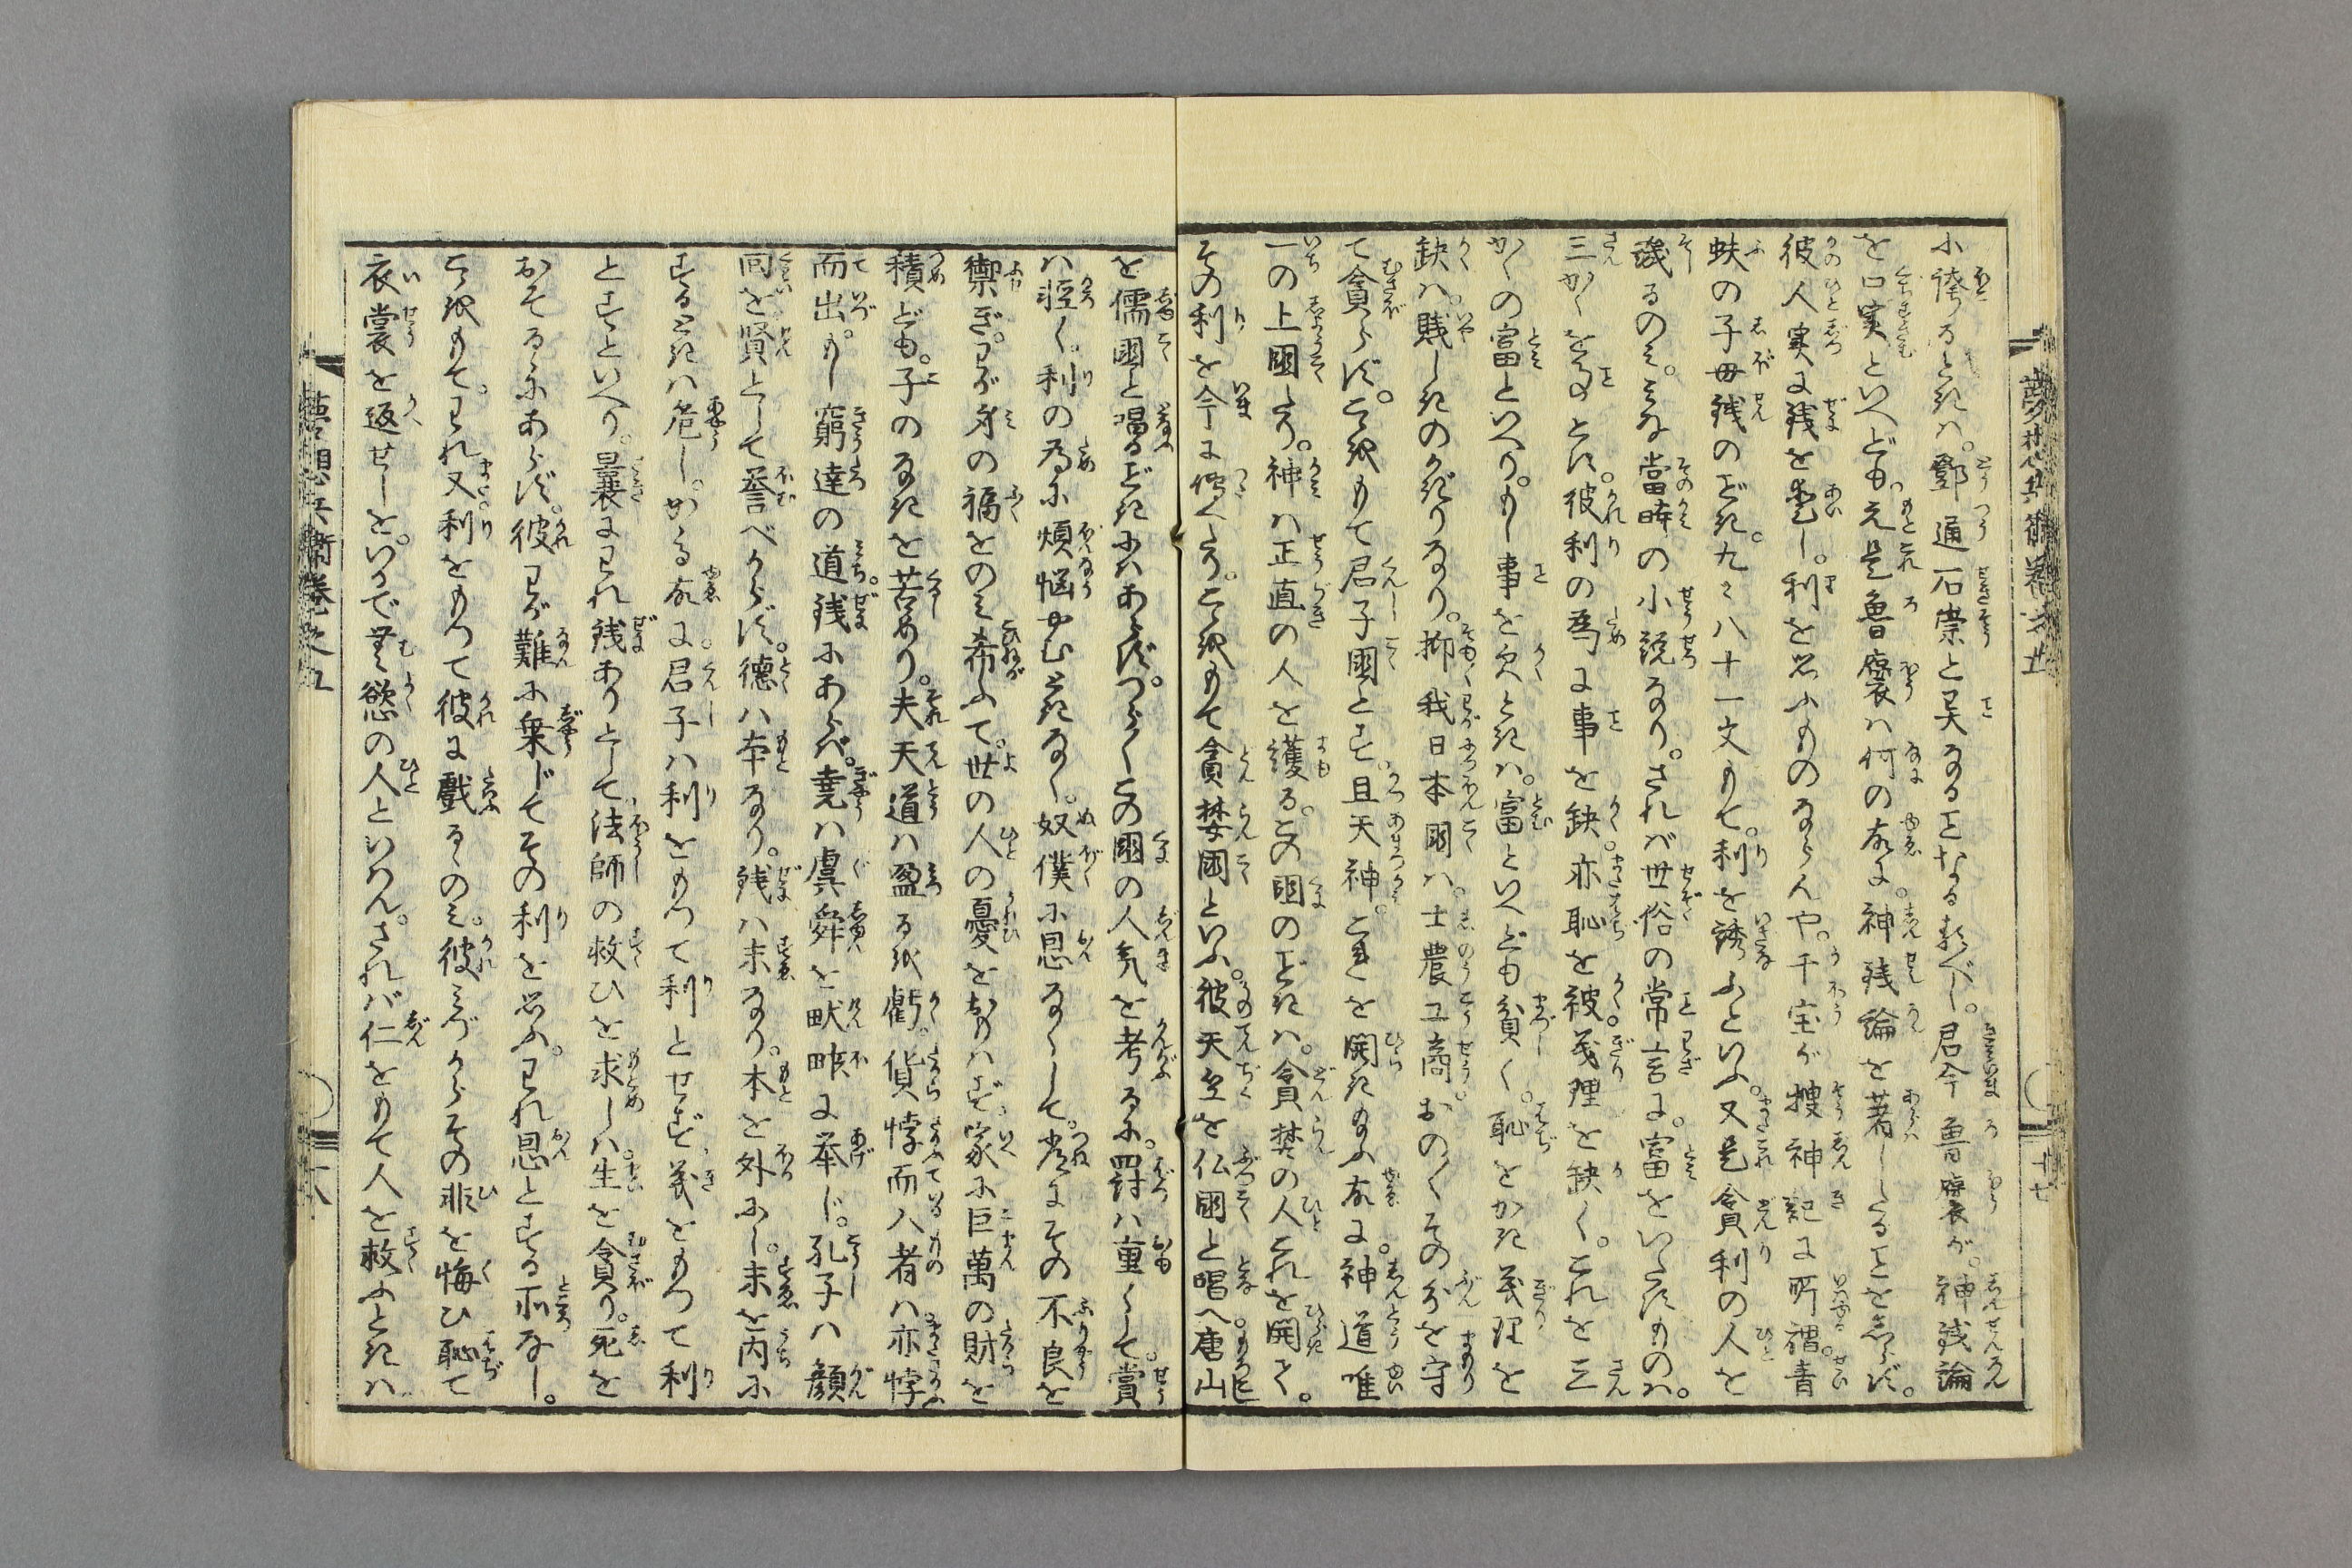 に誇るときは。鄧通石崇と異なることなる類べし。君今魯褒が。神銭論
を口実といへども。元是魯褒は何の故に。神銭論を著したることをしらず。
彼人実に銭を愛し。利を思ふものならんや。干宝が捜神記に所謂青
蚨の子母銭のごとき。九々八十一文もて。利を誘ふといふ。又是貪利の人を
譏るのみ。みな當時の小説なり。されば世俗の常言に。富をいたすものは。
三かくをすとぞ。彼利の為に事を缺。亦恥を被。義理を缺く。これを三
かくの富といへり。もし事を欠ときは。富といへども貧く。恥をかき義理を
缺は。賎しきのかぎりなり。抑我日本國は。士農工商。おの〱その分を守
て貪らず。こゝをもて君子國とす。且天神。こゝを開きたまふ故に。神道唯
一の上國たり。神は正直の人を護る。この國のごときは。貪婪の人これを開く。
その利を今に傳へたり。こゝをもて貪婪國といふ。彼天竺を仏國と唱へ唐山
を儒國と唱るごときにはあらず。つら〱この國の人気を考るに。罰は重くして。賞
は軽く。利の為に煩悩やむときなく。奴僕に恩なくして。常にその不良を
禦ぎ。わが身の福をのみ希ふて。世の人の憂をおもはず。家に巨萬の財を
積ども。子のなきを苦めり。夫天道は盈るを虧。貨悖而入者は亦悖
而出。もし窮達の道。銭にあらば。堯は虞舜を畎畝に挙じ。孔子は顔
回を賢として誉べからず。徳は本なり。銭は末なり。本を外にし。末を内に
するときは危し。かゝる故に。君子は利をもつて利とせず。義をもつて利
とすといへり。曩にわれ銭ありとして。法師の救ひを求しは。生を貪り。死を
おそるゝにあらず。彼わが難に乗じてその利を思ふ。われ恩とする所なし。
こゝをもて。われ又利をもつて彼に戯るゝのみ。彼みづからその非を悔ひ恥て
衣裳を返せしを。いかで無慾の人といはん。されば仁をもて人を救ふときは
夢想兵衛巻之五